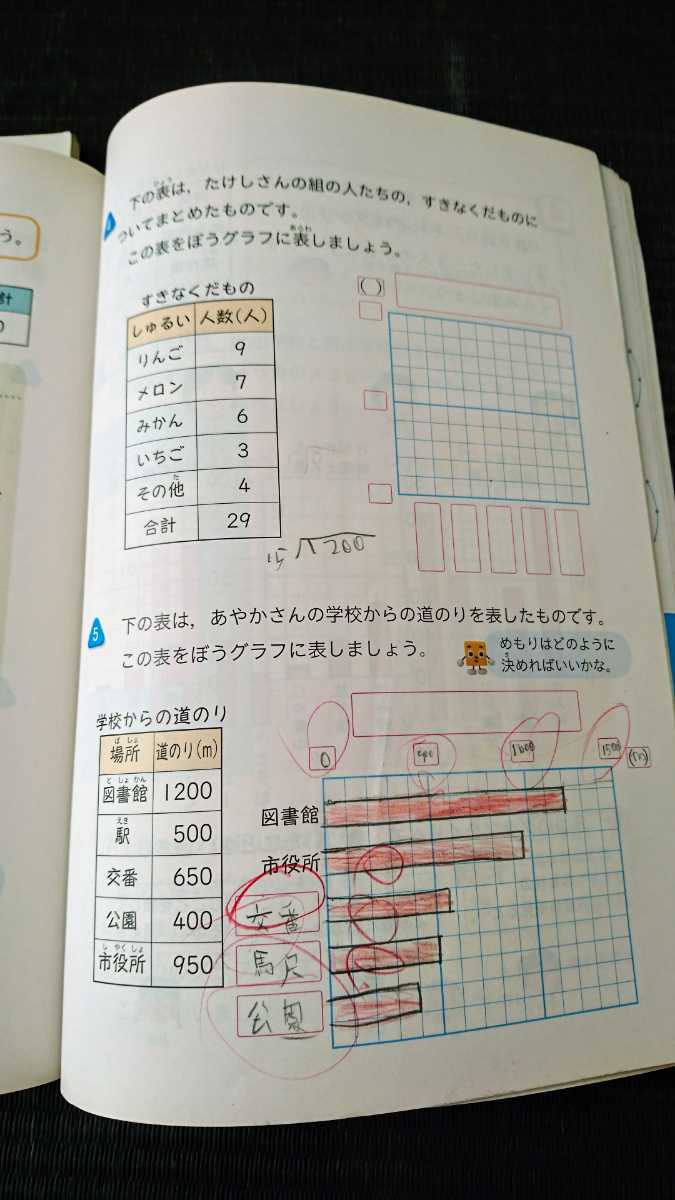 う。
計
0
下の表は，たけしさんの組の人たちの，すきなくだものに
ついてまとめたものです。
この表をぼうグラフに表しましょう。
すきなくだもの
しゅるい 人数(人)
りんご 9
メロン 7
みかん 6
いちご 3
その他 4
合計 29
( )
15 200
5
下の表は，あやかさんの学校からの道のりを表したものです。
この表をぼうグラフに表しましょう。
めもりはどのように
決めればいいかな。
学校からの道のり
場所 道のり(m)
図書館 1200
駅 500
交番 650
公園 400
市役所 950
0 1000 1500 (m)
図書館
市役所
交番
公園